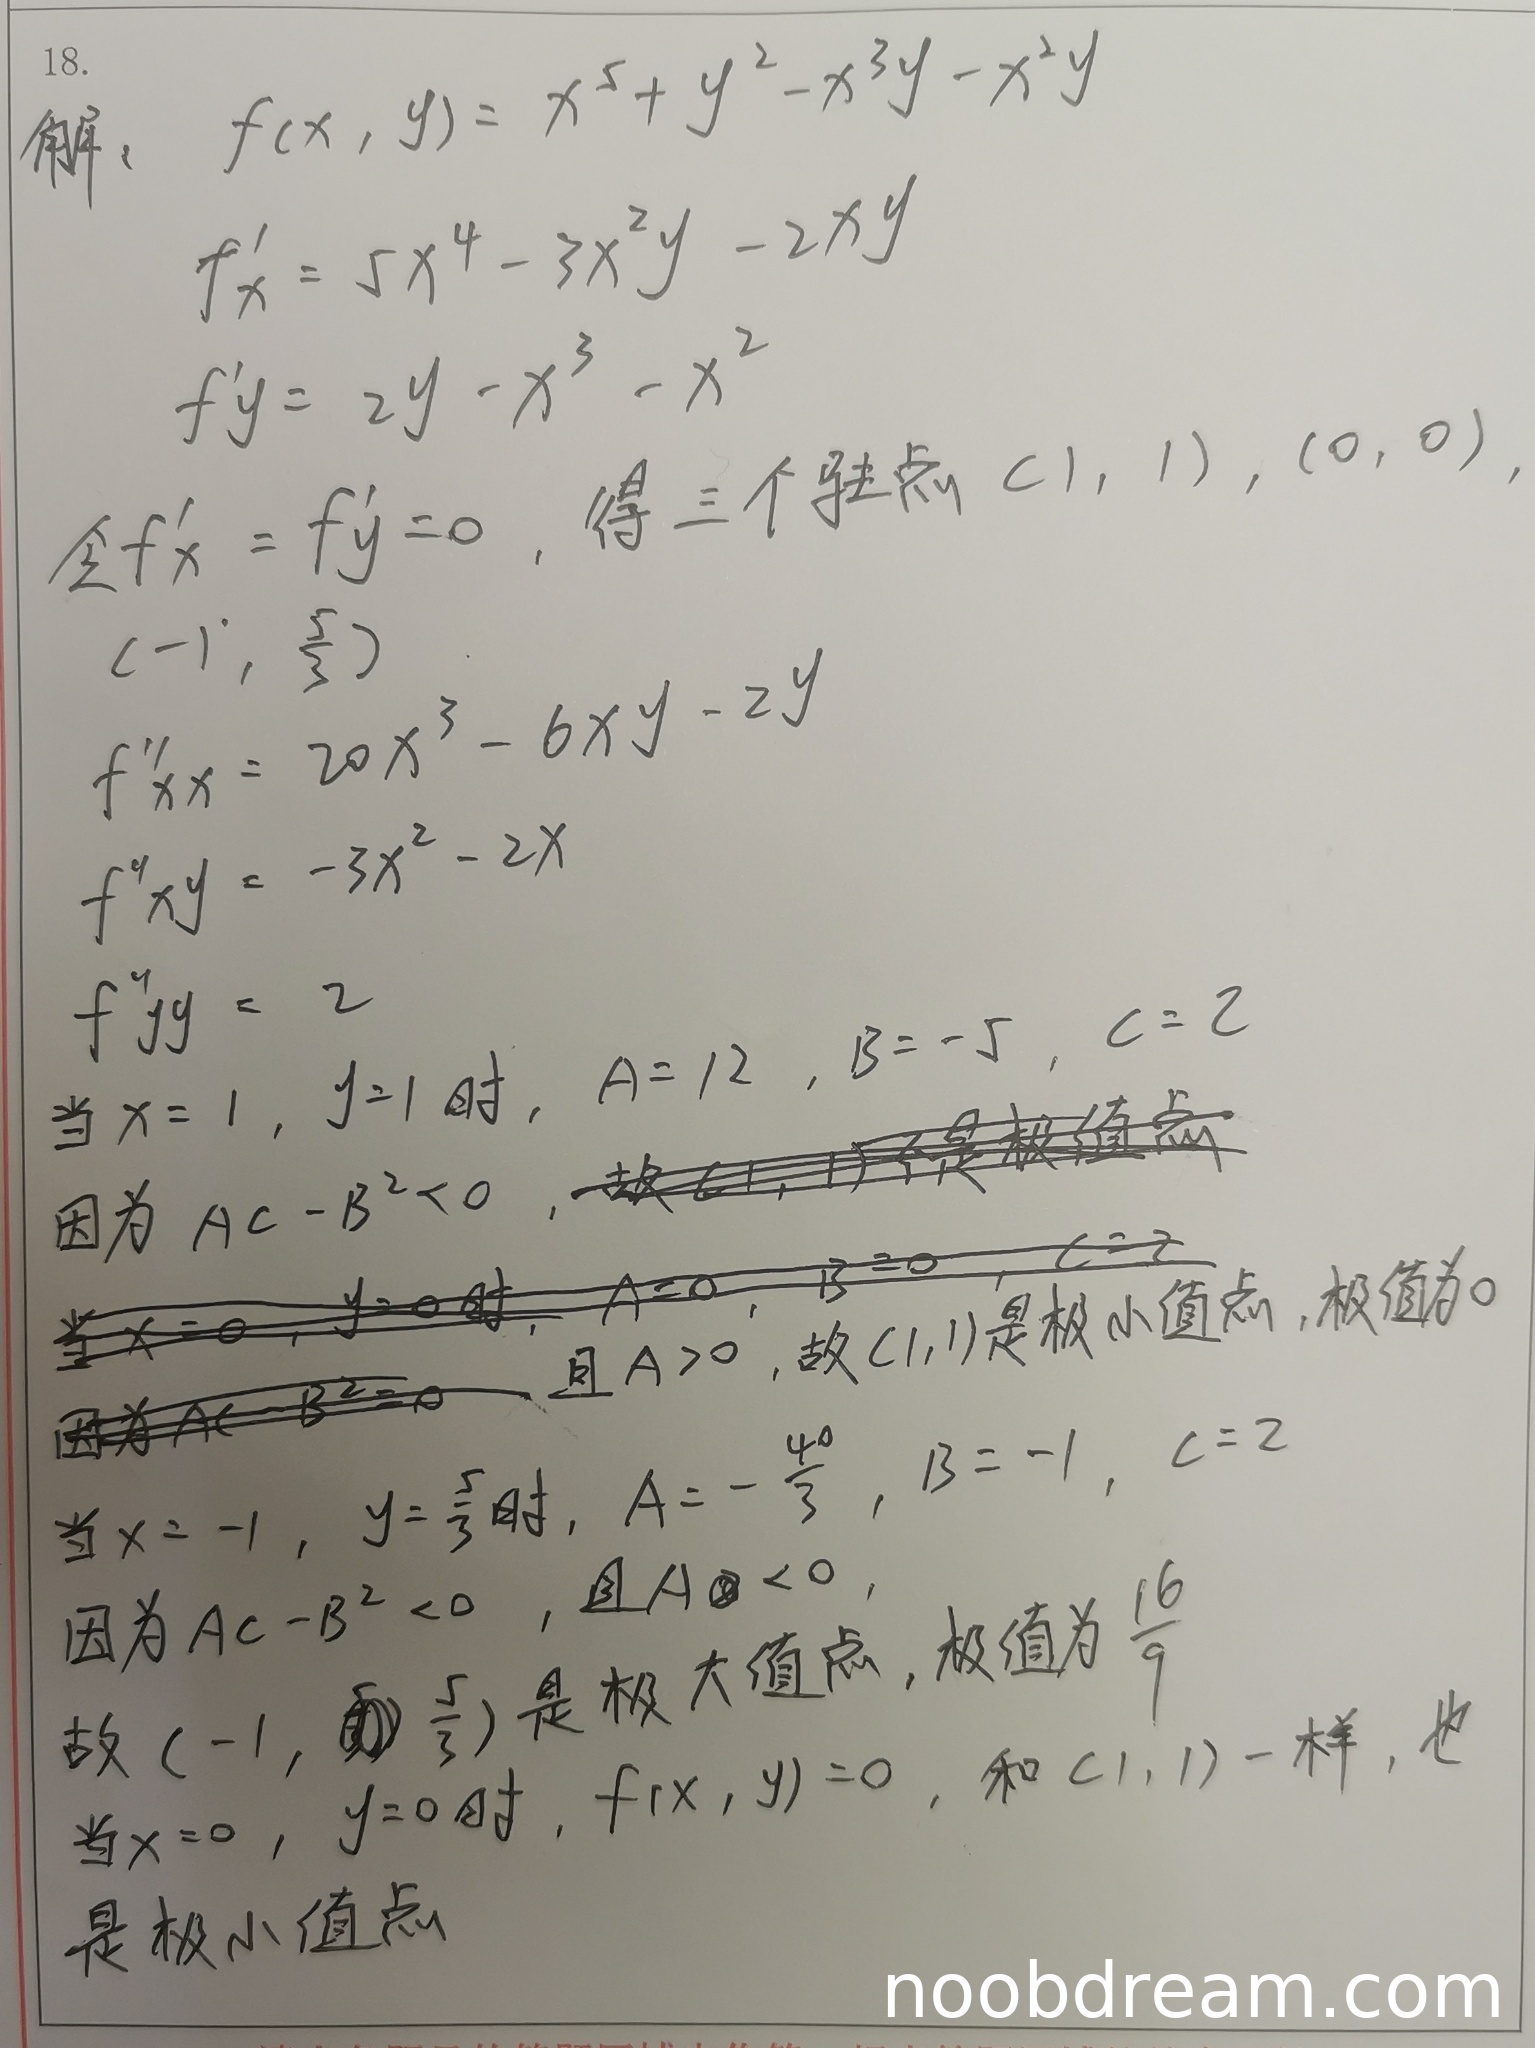 18.
解: f(x,y)=x⁵+y²-x³y-x²y
f'x=5x⁴-3x²y-2xy
f'y=2y-x³-x²
令f'x=f'y=0,得三个驻点(1,1),(0,0),
(-1,5/3)
f''xx=20x³-6xy-2y
f''xy=-3x²-2x
f''yy=2
当x=1,y=1时,A=12,B=-5,C=2
因为AC-B²<0,故(1,1)不是极值点
当x=0,y=0时,A=0,B=0,C=2
因为AC-B²=0 且A>0,故(1,1)是极小值点,极值为0
当x=-1,y=5/3时,A=-40/3,B=-1,C=2
因为AC-B²<0,且A<0,
故(-1,5/3)是极大值点,极值为16/9
当x=0,y=0时,f(x,y)=0,和(1,1)一样,也
是极小值点
noobdream.com